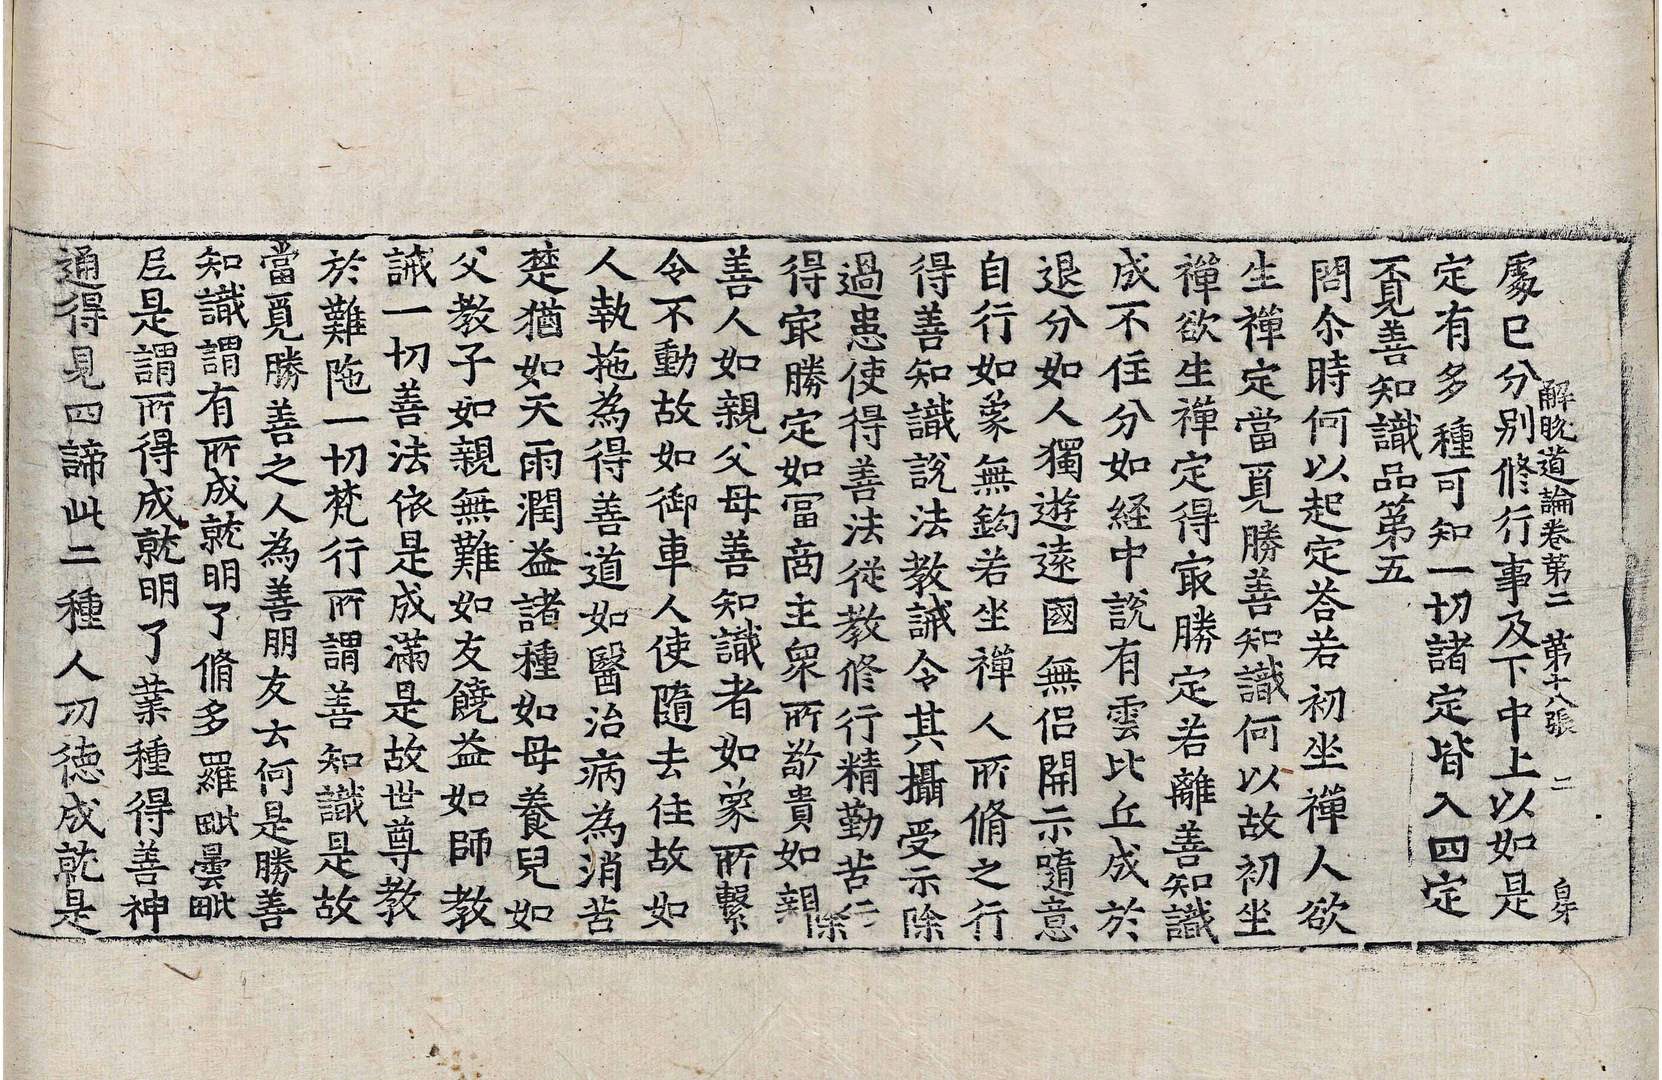 解脫道論卷第二 第十八張 二 自字
處已分別修行事及下中上以如是
定有多種可知一切諸定皆入四定
覔善知識品第五
問尒時何以起定荅若初坐禪人欲
生禪定當覓勝善知識何以故初坐
禪欲生禪定得㝡勝定若離善知識
成不住分如経中說有雲比丘成於
退分如人獨遊遠國無侣開示隨意
自行如象無鈎若坐禪人所脩之行
得善知識說法教誡令其攝受示除
過患使得善法従教修行精勤苦行
得㝡勝定如冨啇主衆所敬貴如親
善人如親父母善知識者如象所繫
令不動故如御車人使隨去住故如
人執拖為得善道如醫治病為消苦
楚猶如天雨潤益諸種如母養兒如
父教子如親無難如友饒益如師教
誡一切善法依是成滿是故世尊教
於難陁一切梵行所謂善知識是故
當覓勝善之人為善朋友云何是勝善
知識謂有所成就明了脩多羅毗曇毗
尼是謂所得成就明了業種得善神
通得見四諦此二種人功徳成就是